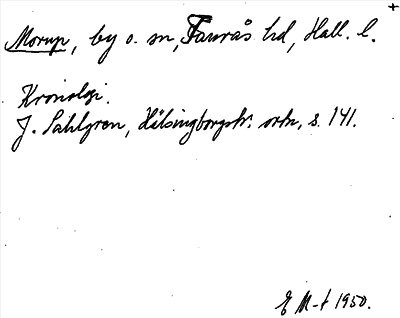 Morup, by o. sn, Faurås hd, Hall. l.
Kronologi.
J. Sahlgren, Hälsingborgstr. ortn, s. 141.
E M-t 1950.